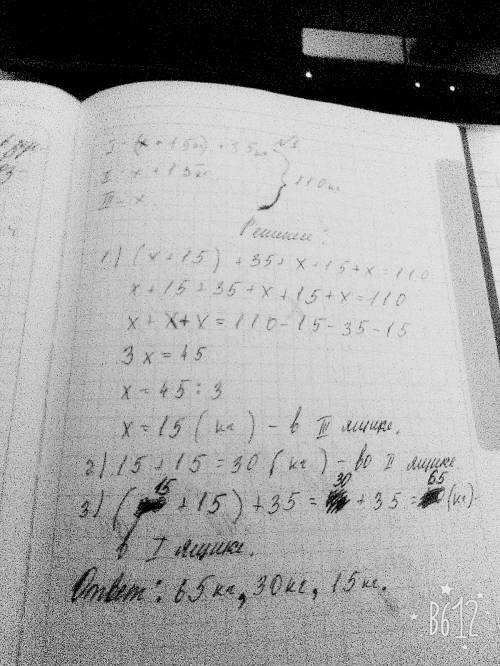 №1
I - (x + 15кг) + 35кг
II - x + 15кг
110кг
III - x
Решение:
1) (x+15) + 35 + x + 15 + x = 110
x + 15 + 35 + x + 15 + x = 110
x + x + x = 110 - 15 - 35 - 15
3x = 45
x = 45 : 3
x = 15 (кг) - в III ящике.
2) 15 + 15 = 30 (кг) - во II ящике
3) (15 + 15) + 35 = 30 + 35 = 65 (кг) -
в I ящике.
Ответ: 65кг, 30кг, 15кг.
B612